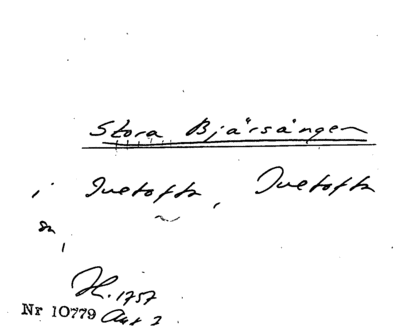 Stora Bjärsängen
i Ivetofta, Ivetofta
sn,
H. 1757
Nr 10779 Akt 2